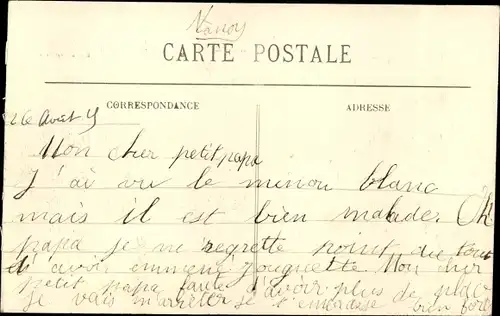 Nancy
CARTE POSTALE
CORRESPONDANCE
ADRESSE
26 Avril
Mon cher petit papa
J'ai vu le minou blanc
mais il est bien malade. Oh
papa je ne regrette point du tout
d'avoir emmené Mon cher
petit papa faute d'avoir plus de place
je vais m'arrêter je t'embrasse bien fort